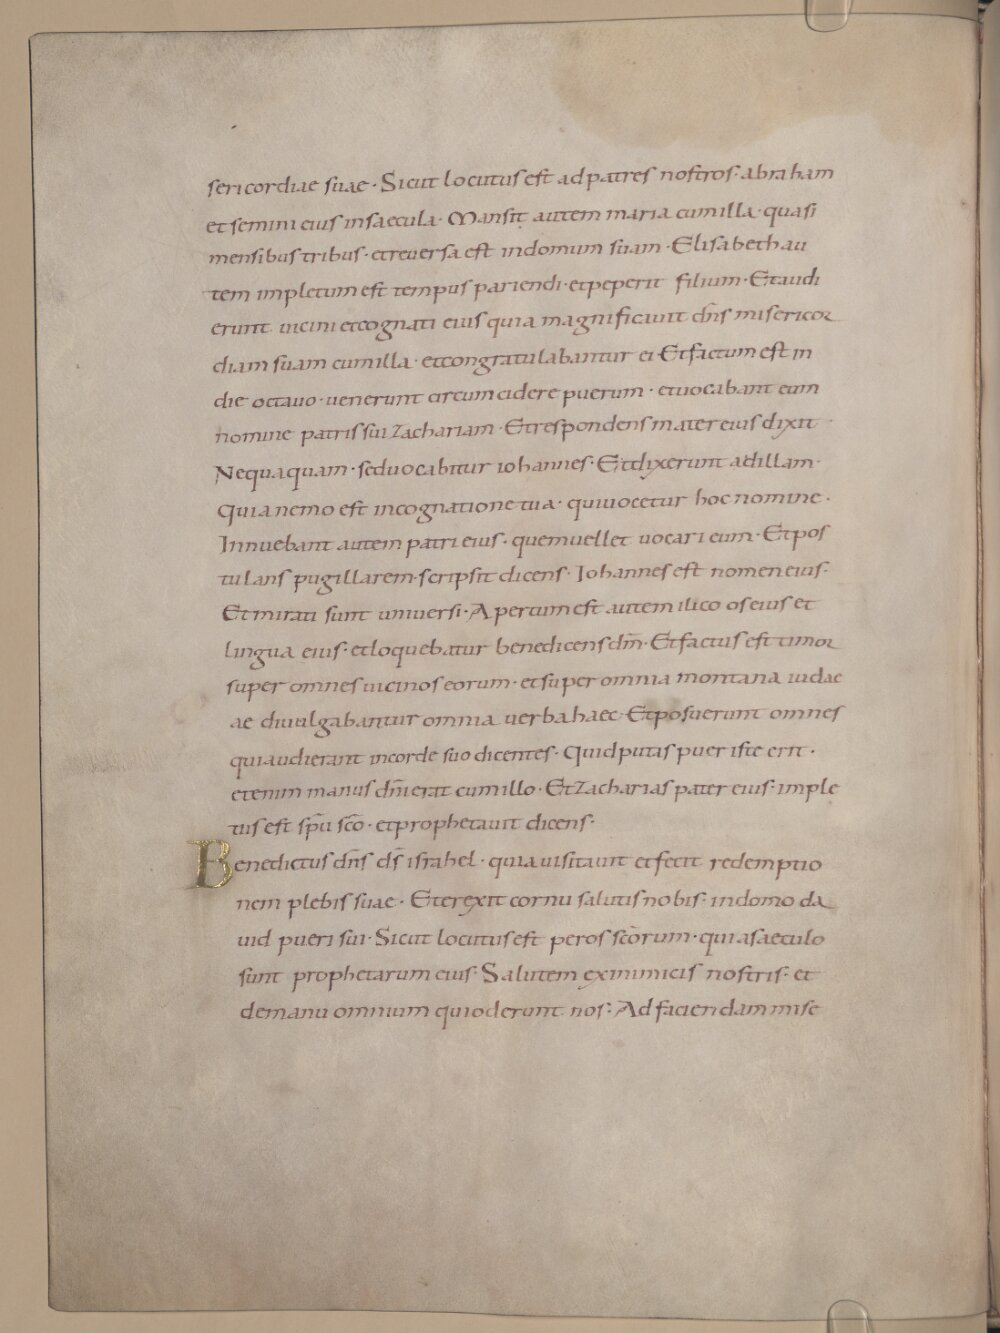 sericordiae suae · Sicut locutus est ad patres nostros · abraham
et semini eius in saecula · Mansit autem maria cum illa · quasi
mensibus tribus · et reversa est in domum suam · Elisabeth au
tem impletum est tempus pariendi · et peperit filium · Et audi
erunt vicini et cognati eius quia magnificavit dn̄s misericor
diam suam cum illa · et congratulabantur ei Et factum est in
die octavo · venerunt circumcidere puerum · et vocabant eum
nomine patris sui zachariam · Et respondens mater eius dixit
Nequaquam · sed vocabitur iohannes · Et dixerunt ad illam ·
Quia nemo est in cognatione tua · qui vocetur hoc nomine ·
Innuebant autem patri eius · quem vellet vocari eum · Et pos
tulans pugillarem · scripsit dicens · Iohannes est nomen eius ·
Et mirati sunt universi · Apertum est autem ilico os eius et
lingua eius · et loquebatur benedicens dm̄ · Et factus est timor
super omnes vicinos eorum · et super omnia montana iudae
ae divulgabantur omnia verba haec · Et posuerunt omnes
qui audierant in corde suo dicentes · Quid putas puer iste erit ·
etenim manus dn̄i erat cum illo · Et Zacharias pater eius · imple
tus est sp̄u sc̄o · et prophetavit dicens ·
Benedictus dn̄s ds̄ israhel · quia visitavit et fecit redemptio
nem plebis suae · Et erexit cornu salutis nobis · in domo da
vid pueri sui · Sicut locutus est per os sc̄orum · qui a saeculo
sunt prophetarum eius · Salutem ex inimicis nostris · et
de manu omnium qui oderunt nos · Ad faciendam mise